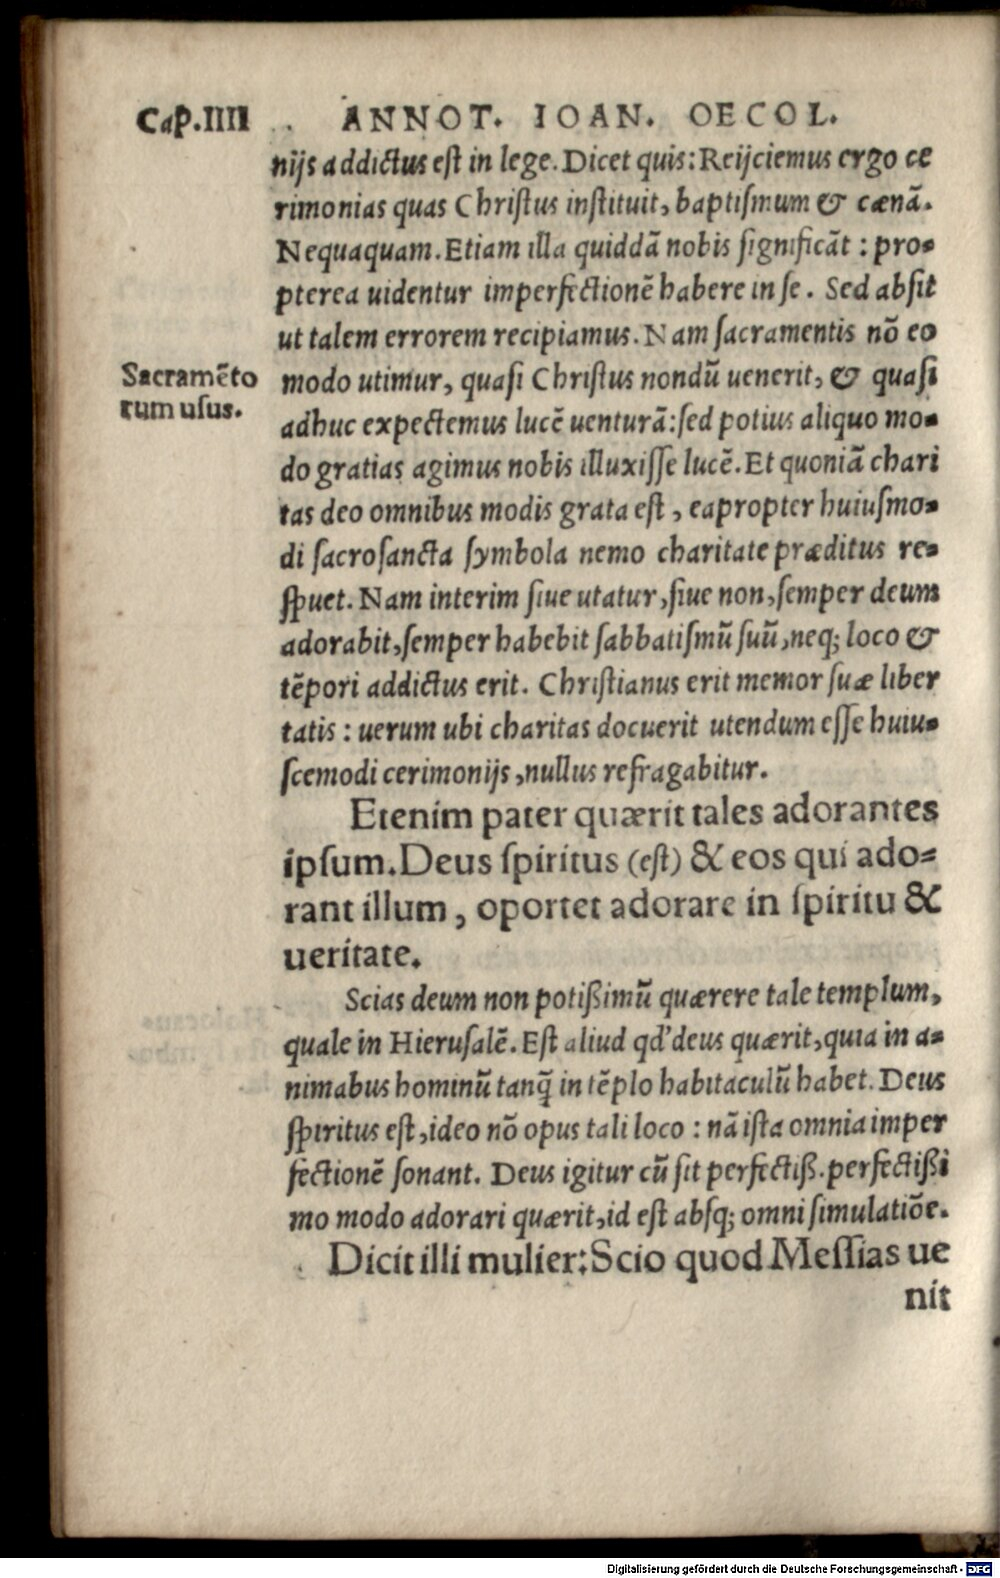 Cap.IIII ANNOT. IOAN. OECOL.
nijs addictus est in lege. Dicet quis: Reijciemus ergo ce
rimonias quas Christus instituit, baptismum & cænā.
Nequaquam. Etiam illa quiddā nobis significāt : pro-
pterea uidentur imperfectionē habere in se. Sed absit
ut talem errorem recipiamus. Nam sacramentis nō eo
Sacramēto
rum usus.
modo utimur, quasi Christus nondū uenerit, & quasi
adhuc expectemus lucē uenturā: sed potius aliquo mo-
do gratias agimus nobis illuxisse lucē. Et quoniā chari
tas deo omnibus modis grata est, eapropter huiusmo-
di sacrosancta symbola nemo charitate præditus re-
spuet. Nam interim siue utatur, siue non, semper deum
adorabit, semper habebit sabbatismū suū, neq; loco &
tēpori addictus erit. Christianus erit memor suæ liber
tatis : uerum ubi charitas docuerit utendum esse huiu-
scemodi cerimonijs, nullus refragabitur.
Etenim pater quærit tales adorantes
ipsum. Deus spiritus (est) & eos qui ado-
rant illum, oportet adorare in spiritu &
ueritate.
Scias deum non potißimū quærere tale templum,
quale in Hierusalē. Est aliud qd' deus quærit, quia in a-
nimabus hominū tanq̄ in tēplo habitaculū habet. Deus
spiritus est, ideo nō opus tali loco : nā ista omnia imper
fectionē sonant. Deus igitur cū sit perfectiß. perfectißi
mo modo adorari quærit, id est absq; omni simulatiōe.
Dicit illi mulier: Scio quod Messias ue
nit
Digitalisierung gefördert durch die Deutsche Forschungsgemeinschaft - DFG